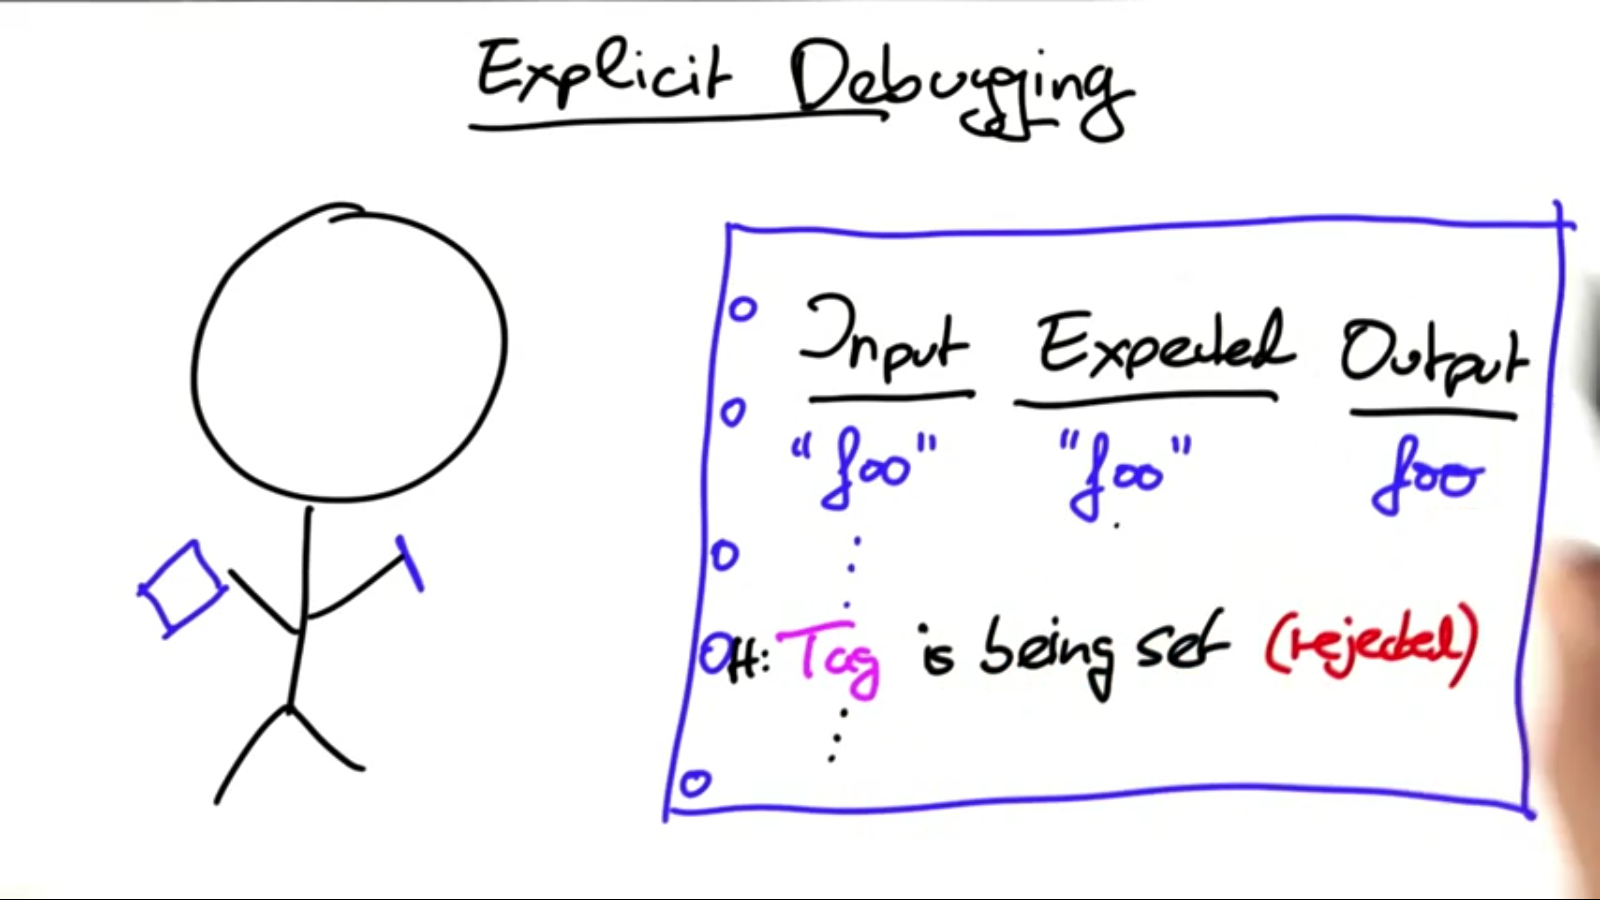 Explicit Debugging
Input Expected Output
"foo" "foo" foo
H: Tag is being set (rejected)